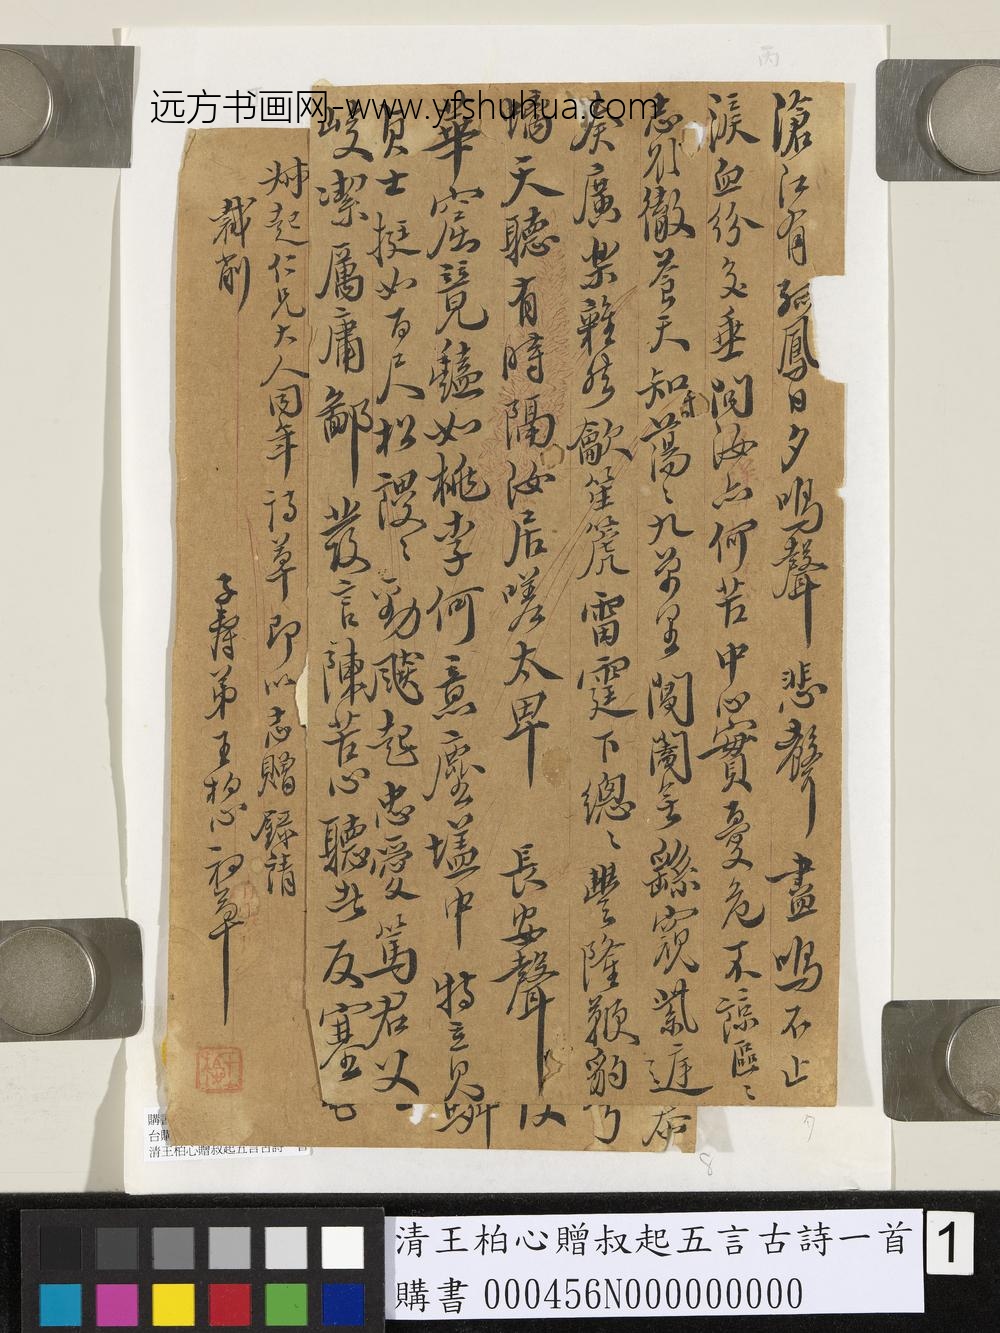 远方书画网-www.yfshuhua.com
滄江有孤鳳日夕鳴聲悲聲盡鳴不止
淚血紛交垂問汝亦何苦中心實憂危不諒區〻
志徹蒼天知蕩〻九萬里閶闔無繇窺紫庭
奏廣樂雜然龡笙箎雷霆下總〻豐隆鞭豹
天聽有時隔汝居嗟太卑 長安聲
華窟競豔如桃李何意塵壒中特立見
貞士挺如百尺松謖〻勁颷起忠愛篤君父
潔厲庸鄙發言陳苦心聽者反塞
叔起仁兄大人同年詩草即以志贈錄請
裁削
子壽弟王柏心初草
清王柏心贈叔起五言古詩一首
清王柏心贈叔起五言古詩一首
購書 000456N000000000
1